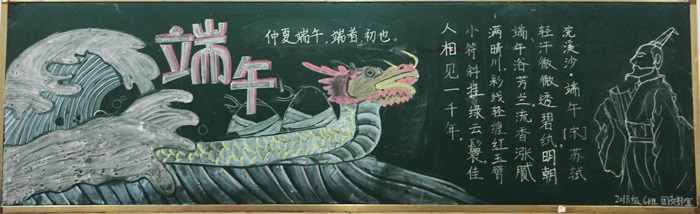 端午
仲夏端午,端者,初也。
浣溪沙·端午[宋]苏轼
轻汗微微透碧纨,明朝
端午浴芳兰流香涨腻
满晴川,彩线轻缠红玉臂
小符斜挂绿云鬟佳
人相见一千年。
2018级